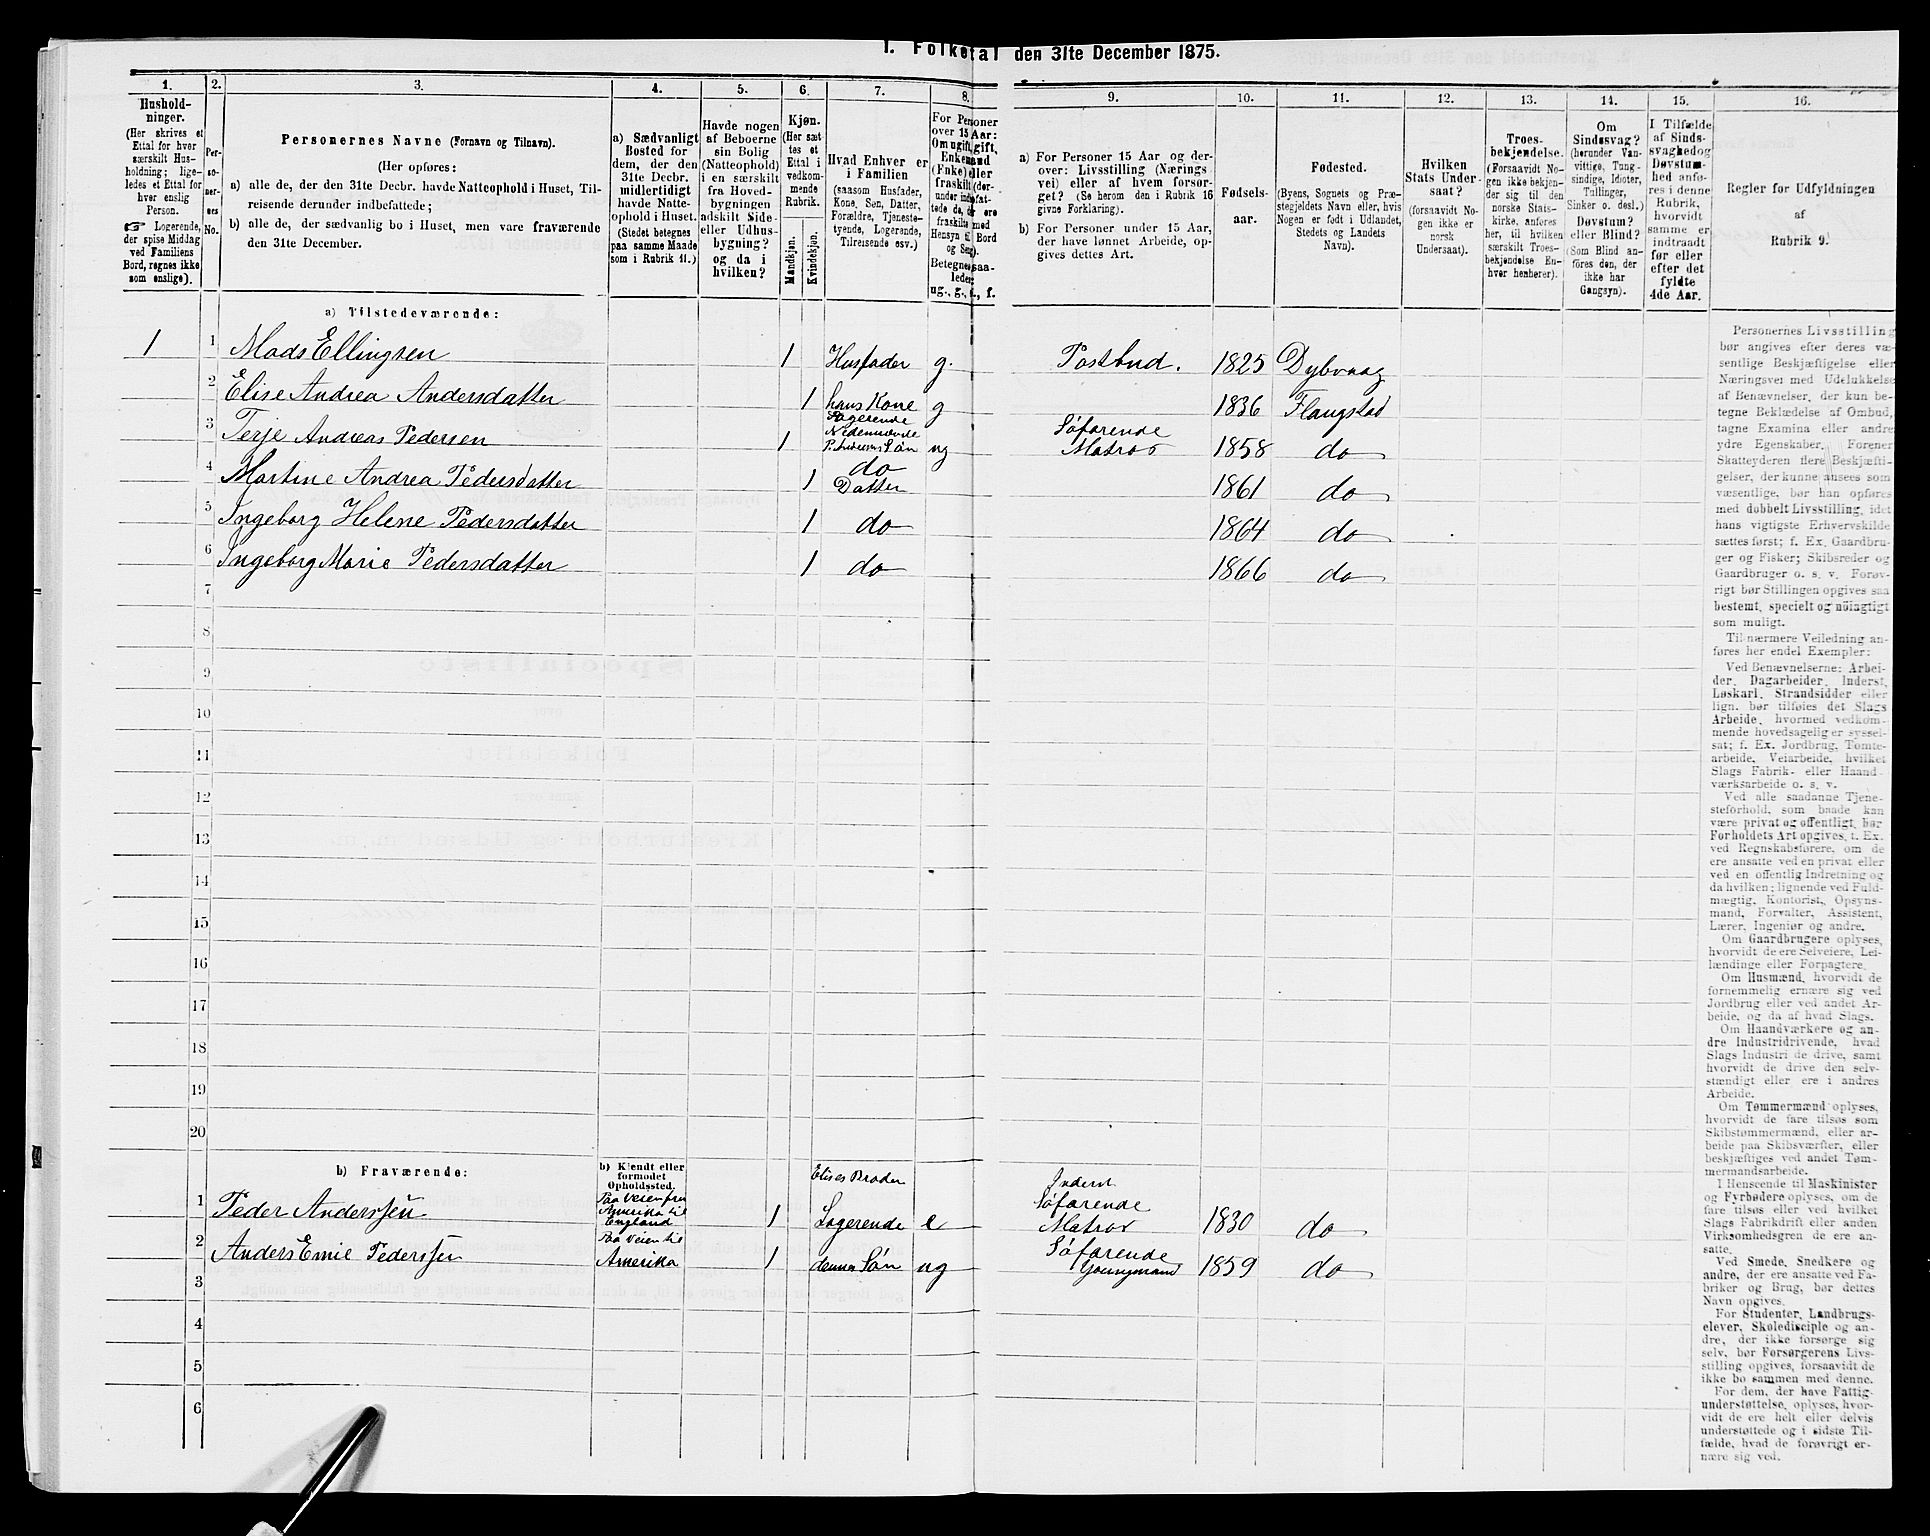 1. Folketal den 31te December 1875.
1. 2. 3. 4. 5. 6. 7. 8. 9. 10. 11. 12. 13. 14. 15. 16.
Hushold-
ninger.
(Her skrives et
Ettal for hver
særskilt Hus-
holdning; lige-
ledes et Ettal for
hver enslig
Person.
☞ Logerende,
der spise Middag
ved Familiens
Bord, regnes ikke
som enslige).
Per-
so-
ner-
nes
No.
Personernes Navne (Fornavn og Tilnavn).
(Her opføres:
a) alle de, der den 31te Decbr. havde Natteophold i Huset, Til-
reisende derunder indbefattede;
b) alle de, der sædvanlig bo i Huset, men vare fraværende
den 31te December.
a) Sædvanligt
Bosted for
dem, der den
31te Decbr.
midlertidigt
havde Natte-
ophold i Huset.
(Stedet betegnes
paa samme Maade
som i Rubrik 11.)
Havde nogen
af Beboerne
sin Bolig
(Natteophold)
i en særskilt
fra Hoved-
bygningen
adskilt Side-
eller Udhus-
bygning?
og da i
hvilken?
Kjøn.
(Her sæt
tes et
Ettal i
vedkom-
mende
Rubrik.
Mandkjøn.
Kvindekjøn.
Hvad Enhver er
i Familien
(saasom Husfader,
Kone, Søn, Datter,
Forældre, Tjeneste-
tyende, Logerende,
Tilreisende osv.)
For Personer
over 15 Aar:
Om ugift, gift,
Enkemand
(Enke) eller
fraskilt
Betegnes saa-
ledes:
ug., g., e., f.
a) For Personer 15 Aar og der-
over: Livsstilling (Nærings
vei) eller af hvem forsør-
get? (Se herom den i Rubrik 16
givne Forklaring).
b) For Personer under 15 Aar,
der have lønnet Arbeide, op-
gives dettes Art.
Fødsels-
aar.
Fødested.
(Byens, Sognets og Præ-
stegjeldets Navn eller, hvis
Nogen er født i Udlandet,
Stedets og Landets
Navn).
Hvilken
Stats Under-
saat?
(forsaavidt No-
gen ikke er
norsk
Undersaat).
Troes-
bekjendelse.
(Forsaavidt No-
gen ikke bekjen-
der sig til den
norske Stats-
kirke, anføres
her, til hvilken
særskilt Troes-
bekjendelse En-
hver henhører).
Om
Sindssvag?
(herunder Van-
vittige, Tung-
sindige, Idioter,
Tullinger,
Sinker o. desl.)
Døvstum?
eller Blind?
(Som Blind an-
føres den, der
ikke har
Gangsyn).
I Tilfælde
af Sinds-
svaghed og
Døvstum-
hed anfø-
res i denne
Rubrik,
hvorvidt
samme er
indtraadt
før eller
efter det
fyldte
4de Aar.
Regler for Udfyldningen
af
Rubrik 9.
a) Tilstedeværende:
1 1 Mads Ellingsen 1 Husfader g. Postbud. 1825 Dybvaag
2 Elise Andrea Andersdatter 1 hans Kone g 1836 Flangstad
3 Terje Andreas Pedersen 1 Logerende Nedennævnte P. Andersens Søn ug Søfarende Matros 1858 do
4 Martine Andrea Pedersdatter 1 do Datter 1861 do
5 Ingeborg Helene Pedersdatter 1 do 1864 do
6 Ingeborg Marie Pedersdatter 1 do 1866 do
7
8
9
10
11
12
13
14
15
16
17
18
19
20
b) Fraværende:
b) Kjendt eller
formodet
Opholdssted.
1 Peder Anderssen Paa Veien fra Amerika til England 1 Elises Broder Logerende e Inderst Søfarende Matros 1830 do
2 Anders Emil Pederssen Paa Veien til Amerika 1 dennes Søn ug Søfarende Youngmand 1859 do
3
4
5
6
Personernes Livsstilling
bør angives efter deres væ-
sentlige Beskjæftigelse eller
Næringsvei med Udelukkelse
af Benævnelser, der kun be-
tegne Beklædelse af Ombud,
tagne Examina eller andre
ydre Egenskaber. Forener
Skatteyderen flere Beskjæfti-
gelser, der kunne ansees som
væsentlige, bør han opføres
med dobbelt Livsstilling, idet
hans vigtigste Erhvervskilde
sættes først; f. Ex. Gaardbru-
ger og Fisker; Skibsreder og
Gaardbruger o. s. v. Forøv-
rigt bør Stillingen opgives saa
bestemt, specielt og nöiagtigt
som muligt.
Til nærmere Veiledning an-
føres her endel Exempler:
Ved Benævnelserne: Arbei-
der, Dagarbeider, Inderst,
Løskarl, Strandsidder eller
lign. bør tilføies det Slags
Arbeide, hvormed vedkom-
mende hovedsagelig er syssel-
sat; f. Ex. Jordbrug, Tømte-
arbeide, Veiarbeide, hvilket
Slags Fabrik- eller Haand-
værksarbeide o. s. v.
Ved alle saadanne Tjene-
steforhold, som baade kan
være privat og offentligt, bør
Forholdets Art opgives, t. Ex.
ved Regnskabsførere, om de
ere ansatte ved en privat eller
ved en offentlig Indretning og
da hvilken; lignende ved Fuld-
mægtig, Kontorist, Opsyns-
mand, Forvalter, Assistent,
Lærer, Ingeniør og andre.
Om Gaardbrugere oplyses,
hvorvidt de ere Selveiere, Lei-
lændinge eller Forpagtere.
Om Husmænd, hvorvidt de
fornemmelig ernære sig ved
Jordbrug eller ved andet Ar-
beide, og da af hvad Slags.
Om Haandværkere og an-
dre Industridrivende, hvad
Slags Industri de drive, samt
hvorvidt de drive den selv-
stændigt eller ere i andres
Arbeide.
Om Tømmermænd oplyses,
hvorvidt de fare tilsøs som
Skibstømmermænd, eller ar-
beide paa Skibsværfter, eller
beskjæftiges ved andet Tøm-
mermandsarbeide.
I Henseende til Maskinister
og Fyrbødere oplyses, om de
fare tilsøs eller ved hvilket
Slags Fabrikdrift eller anden
Virksomhedsgren de ere an-
satte.
Ved Smede, Snedkere og
andre, der ere ansatte ved Fa-
briker og Brug, bør dettes
Navn opgives.
For Studenter, Landbrugs-
elever, Skoledisciple og an-
dre, der ikke forsørge sig
selv, bør Forsørgerens Livs-
stilling opgives, forsaavidt de
ikke bo sammen med denne.
For dem, der have Fattig-
understøttelse, oplyses, hvor-
vidt de ere helt eller delvis
understøttede og i sidste Til-
fælde, hvad de forøvrigt er-
nære sig ved.